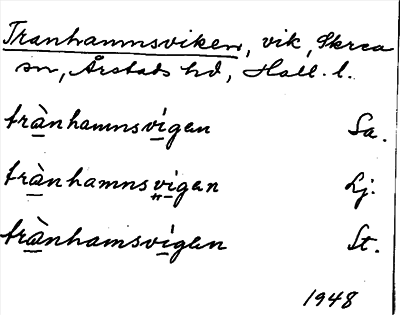 Tranhamnsviken, vik, Skrea
sn, Årstads hd, Hall. l.
trànhamnsvigen Sa.
trànhamnsvigen Lj.
trànhamsvigen St.
1948